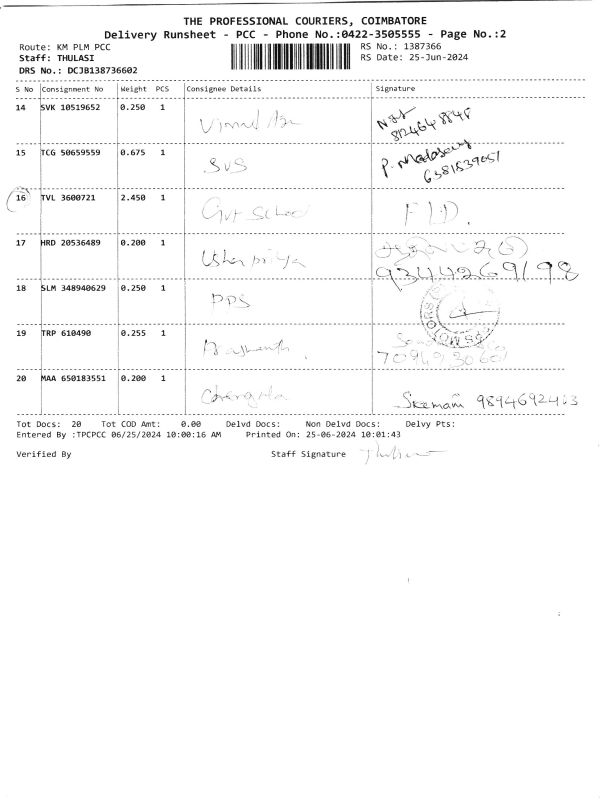 THE PROFESSIONAL COURIERS, COIMBATORE
Delivery Runsheet - PCC - Phone No.:0422-3505555 - Page No.:2
Route: KM PLM PCC RS No.: 1387366
Staff: THULASI RS Date: 25-Jun-2024
DRS No.: DCJB138736602
S No Consignment No Weight PCS Consignee Details Signature
14 SVK 10519652 0.250 1
15 TCG 50659559 0.675 1 SVS
6381539051
16 TVL 3600721 2.450 1 Gvt School
17 HRD 20536489 0.200 1 Usha priya
9344269198
18 SLM 348940629 0.250 1 PPS
19 TRP 610490 0.255 1
20 MAA 650183551 0.200 1
Tot Docs: 20 Tot COD Amt: 0.00 Delvd Docs: Non Delvd Docs: Delvy Pts:
Entered By :TPCPCC 06/25/2024 10:00:16 AM Printed On: 25-06-2024 10:01:43
Verified By Staff Signature